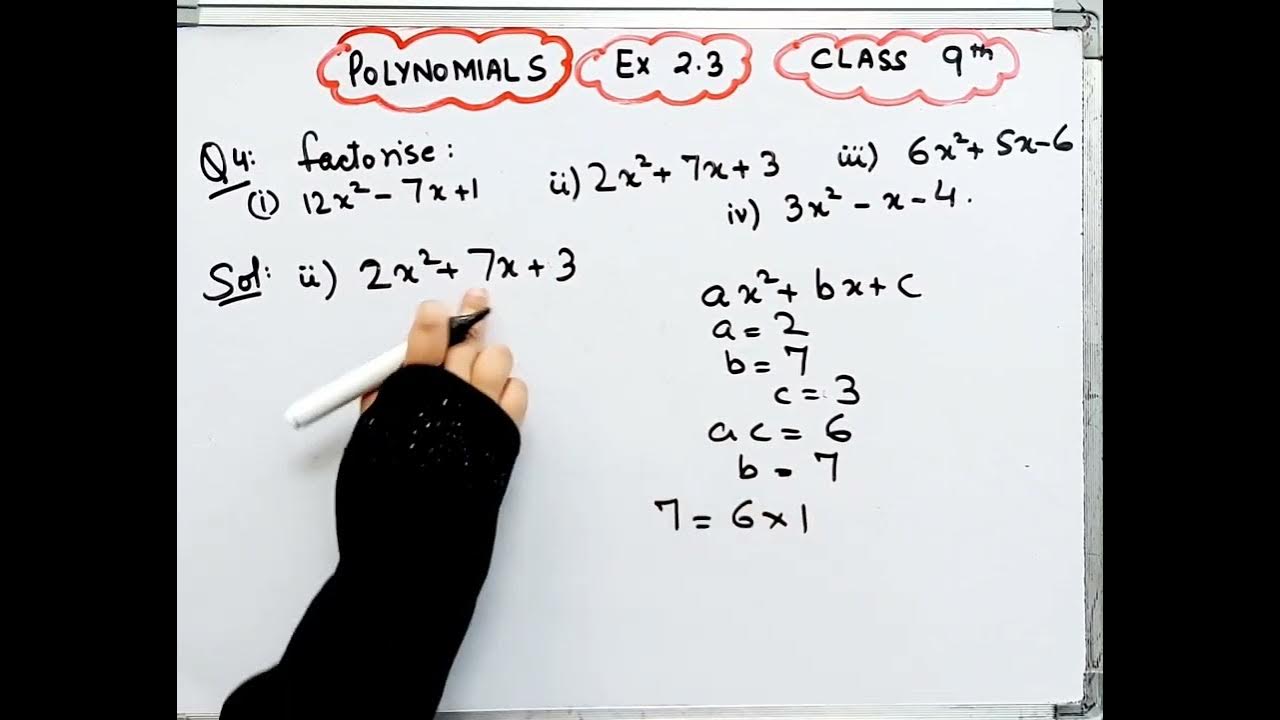 POLYNOMIALS Ex 2.3 CLASS 9th
Q4: factorise:
(i) 12x² - 7x + 1 ii) 2x² + 7x + 3 iii) 6x² + 5x - 6
iv) 3x² - x - 4.
Sol: ii) 2x² + 7x + 3
ax² + bx + c
a = 2
b = 7
c = 3
ac = 6
b = 7
7 = 6 × 1